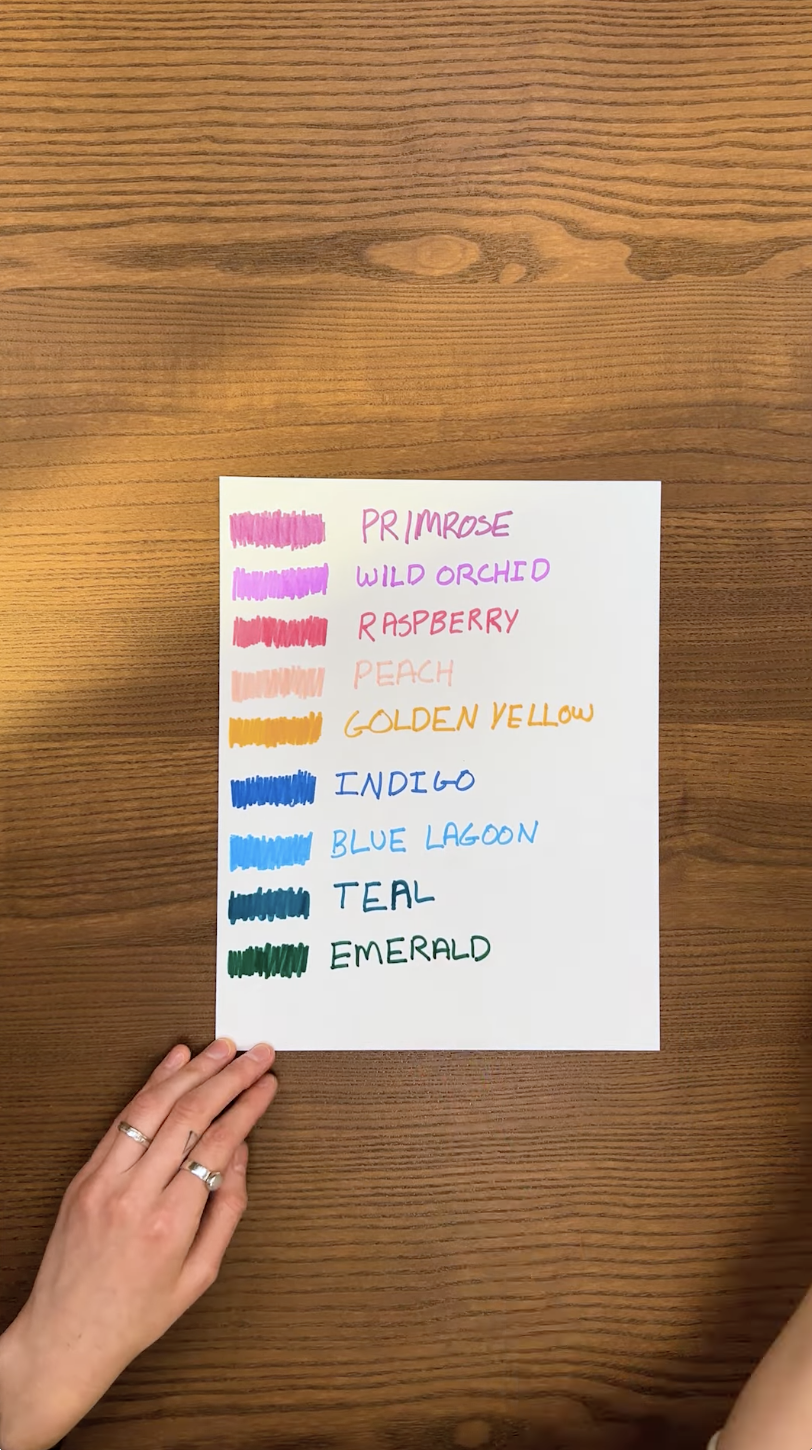 PRIMROSE
WILD ORCHID
RASPBERRY
PEACH
GOLDEN YELLOW
INDIGO
BLUE LAGOON
TEAL
EMERALD